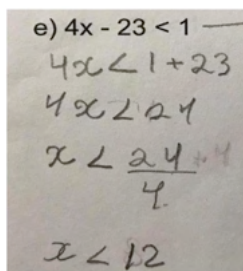 e) 4x - 23 < 1
4x < 1 + 23
4x < 24
x < 24/4
x < 12